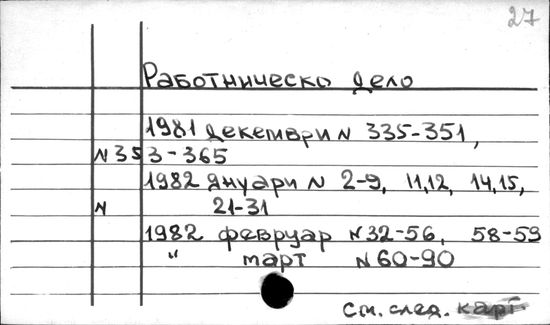 27
Работническо дело
1981 декември N 335-351,
N 353-365
1982 януари N 2-9, 11,12, 14,15,
N 21-31
1982 февруар N 32-56, 58-59
" март N 60-90
См. след. карт.